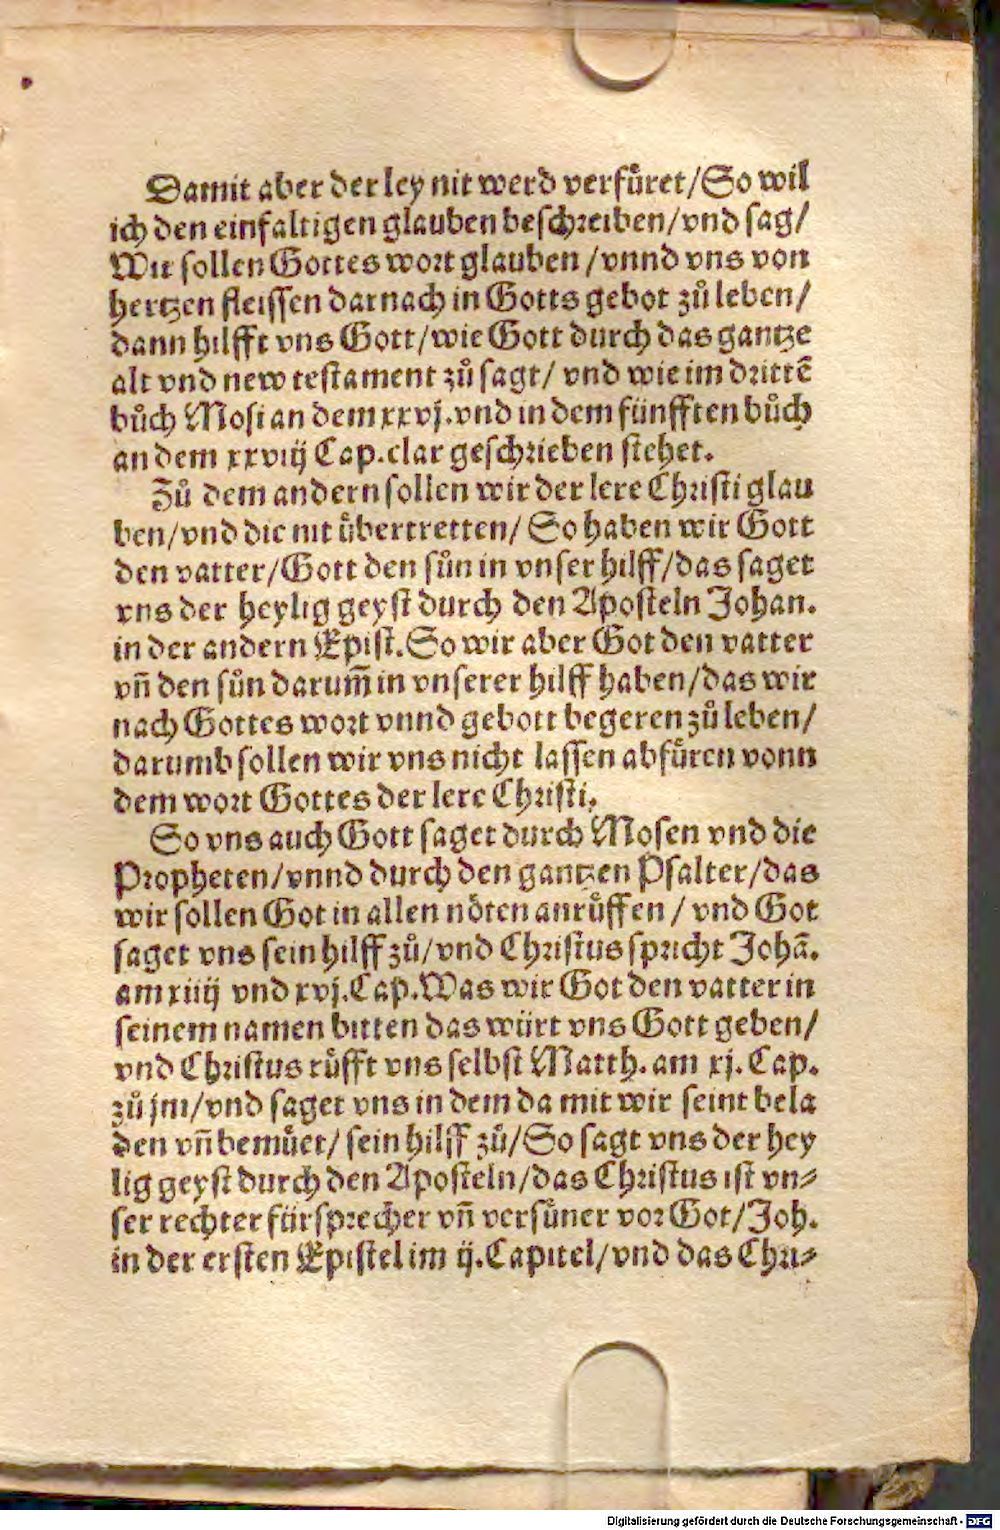 Damit aber der ley nit werd verfuͤret/So wil
ich den einfaltigen glauben beschreiben/vnd sag/
Wir sollen Gottes wort glauben /vnnd vns von
hertzen fleissen darnach in Gotts gebot zuͦ leben/
dann hilfft vns Gott/wie Gott durch das gantze
alt vnd new testament zuͦ sagt/ vnd wie im drittē
buͦch Mosi an dem xxvj.vnd in dem fünfften buͦch
an dem xxviij Cap.clar geschrieben stehet.
Zuͦ dem andern sollen wir der lere Christi glau
ben/vnd die nit übertretten/ So haben wir Gott
den vatter/Gott den suͤn in vnser hilff/das saget
vns der heylig geyst durch den Aposteln Johan.
in der andern Epist.So wir aber Got den vatter
vn̄ den suͤn darum̄ in vnserer hilff haben/das wir
nach Gottes wort vnnd gebott begeren zuͦ leben/
darumb sollen wir vns nicht lassen abfuͤren vonn
dem wort Gottes der lere Christi.
So vns auch Gott saget durch Mosen vnd die
Propheten/vnnd durch den gantzen Psalter/das
wir sollen Got in allen noͤten anruͤffen / vnd Got
saget vns sein hilff zuͦ/vnd Christus spricht Johā.
am xiiij vnd xvj.Cap.Was wir Got den vatter in
seinem namen bitten das würt vns Gott geben/
vnd Christus ruͤfft vns selbst Matth. am xj. Cap.
zuͦ jm/vnd saget vns in dem da mit wir seint bela
den vn̄ bemuͤet/ sein hilff zuͦ/So sagt vns der hey
lig geyst durch den Aposteln/das Christus ist vn⸗
ser rechter fürsprecher vn̄ versuͤner vor Got/Joh.
in der ersten Epistel im ij.Capitel/vnd das Chri⸗
Digitalisierung gefördert durch die Deutsche Forschungsgemeinschaft - DFG